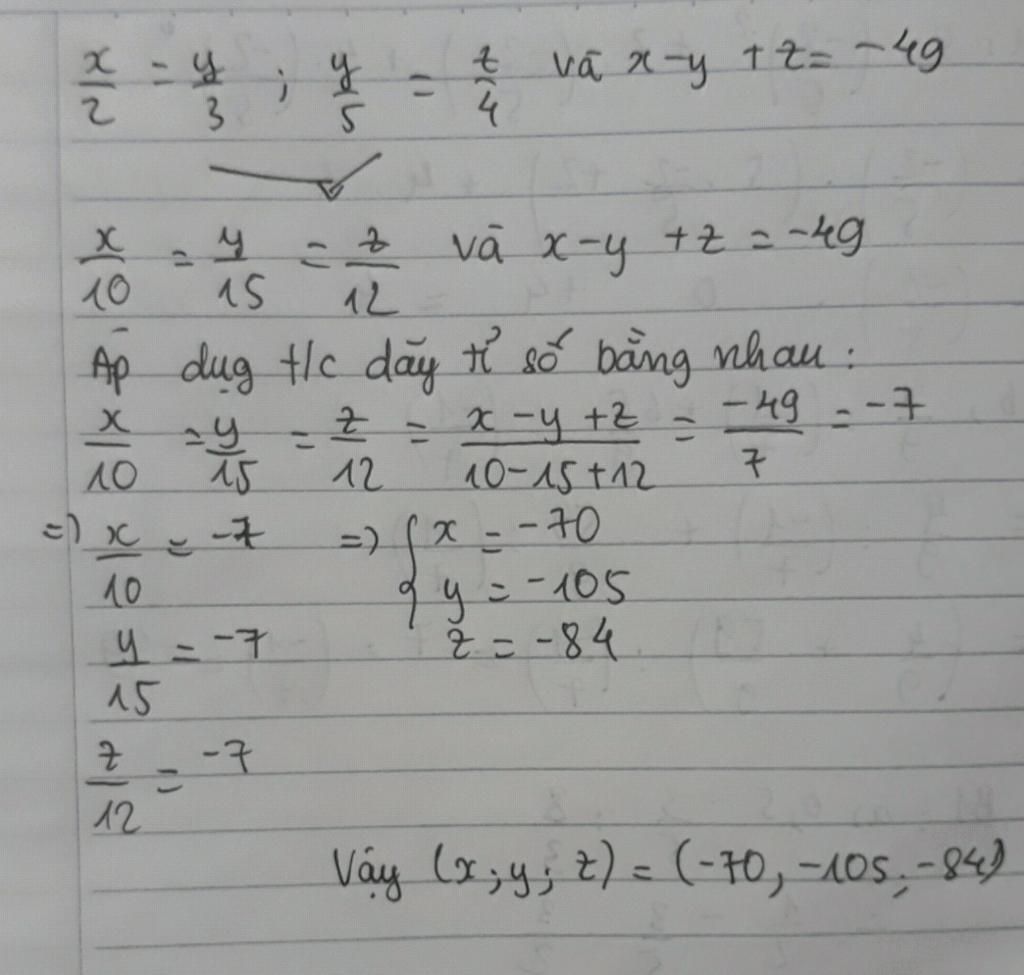 x/2 = y/3 ; y/5 = z/4 và x-y+z = -49
x/10 = y/15 = z/12 và x-y+z = -49
Áp dụg t/c dãy tỉ số bằng nhau :
x/10 = y/15 = z/12 = x-y+z/10-15+12 = -49/7 = -7
=) x/10 = -7 =) { x = -70
y = -105
y/15 = -7 z = -84
z/12 = -7
Vậy (x;y;z) = (-70, -105; -84)